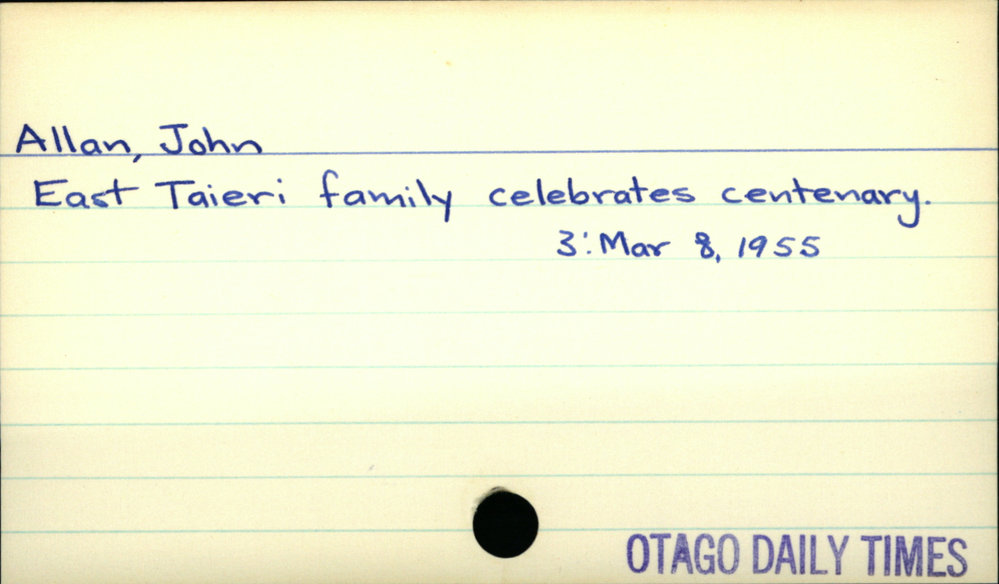 Allan, John
East Taieri family celebrates centenary.
3: Mar 8, 1955
OTAGO DAILY TIMES